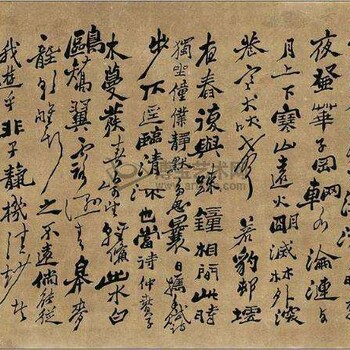 夜登華子岡輞水淪漣与
月上下寒山遠火明滅林外深
巷寒犬吠聲若豹邨墟
夜舂復與疎鐘相間此時
獨坐僮僕靜默多思曩日攜手賦詩
步仄逕臨清流也當待仲春
木蔓發春山可望輕鯈出水白
鷗矯翼露濕青皋麥
之不遠倘能從
我遊乎非子靜機清妙者